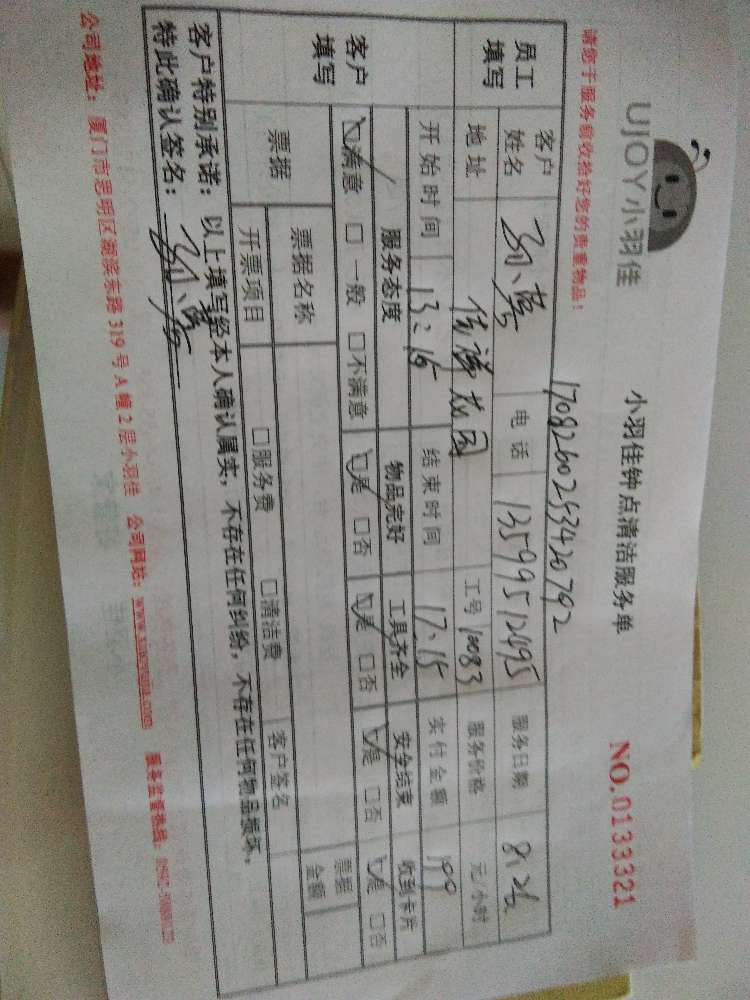 UJOY小羽佳
小羽佳钟点清洁服务单
NO.0133321
请您于服务前收拾好您的贵重物品!
1708260253420792
员工填写
客户姓名 电话 13599512495 服务日期 8.26
地址 花园 工号 10083 服务价格 元/小时
开始时间 13:15 结束时间 17:15 实付金额 199
客户填写
服务态度 物品完好 工具齐全 安全结束 收到卡片
☑满意 □一般 □不满意 ☑是 □否 ☑是 □否 ☑是 □否 ☑是 □否
票据 票据名称 票据金额
开票项目 □服务费 □清洁费 客户签名
客户特别承诺:以上填写经本人确认属实,不存在任何纠纷,不存在任何物品损坏。
特此确认签名:
公司地址:厦门市思明区湖滨东路319号A幢2层小羽佳 公司网站:www.xiaoyujia.com 服务监督热线: